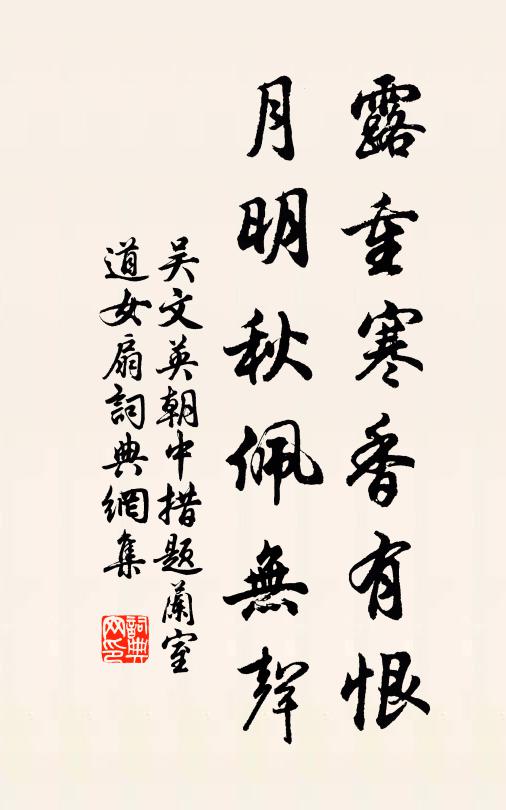 露重寒香有恨
月明秋佩無聲
吳文英朝中措题蘭室
道女扇詞典網集
詞典网印